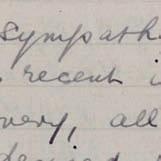 sympath
recent i
very, all